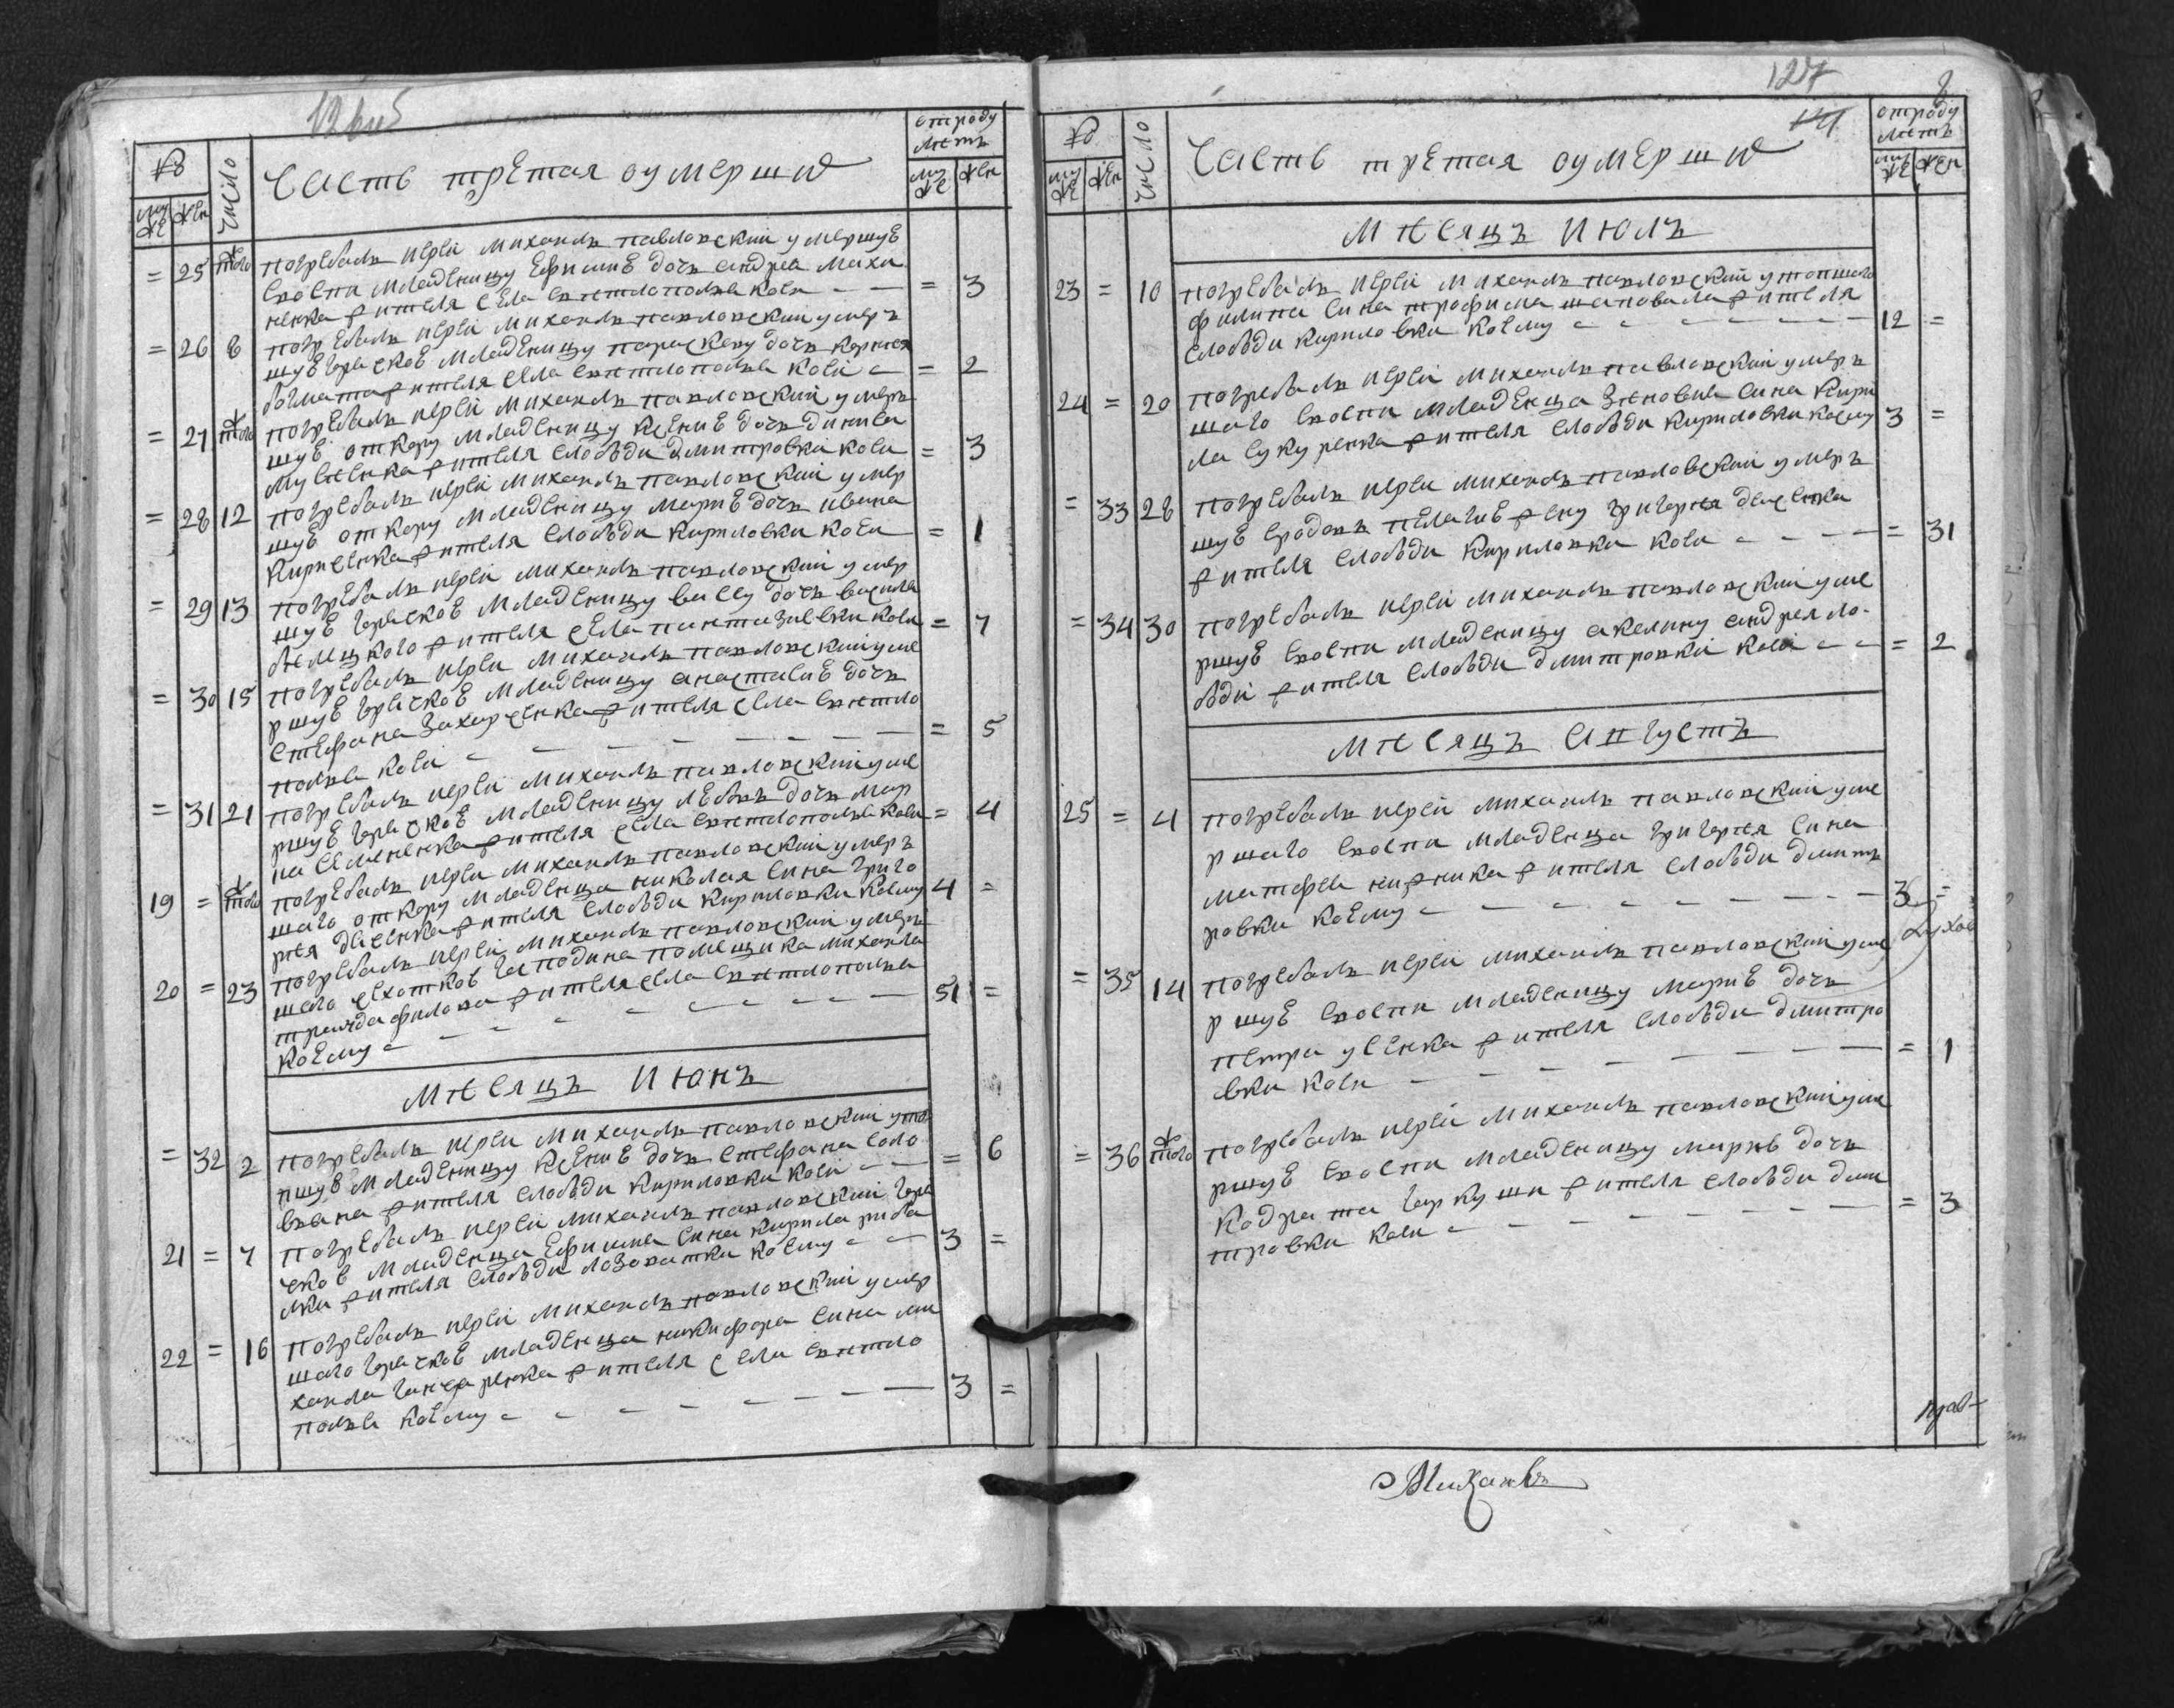 №
муже
жен
число
Часть третая оумерших
отроду летъ
муже
жен
= 25 тогож погребалъ иерей михаилъ павловский умершуе
своспи младеницу ефимие дочь андрея махи
ненка жителя села светлополя коей = 3
= 26 8 погребалъ иерей михаилъ павловский умер
шуе горячкое младеницу параскеву дочь корнея
жителя села светлополя коей = 2
= 27 тогож погребалъ иерей михаилъ павловский умер
шуе откору младеницу ксение дочь данила
жителя слободи дмитровки коей = 3
= 28 12 погребалъ иерей михаилъ павловский умер
шуе откору младеницу марие дочь ивана
кириенка жителя слободи кириловки коей = 1
= 29 13 погребалъ иерей михаилъ павловский умер
шуе горячкое младеницу вассу дочь василя
жителя села коей = 7
= 30 15 погребалъ иерей михаилъ павловский уме
ршуе горячкое младеницу анастасие дочь
стефана захарченка жителя села светло
поля коей = 5
= 31 21 погребалъ иерей михаилъ павловский уме
ршуе горячкое младеницу дочь мар
на семененка жителя села светлополя коей = 4
19 = тогож погребалъ иерей михаилъ павловский умер
шаго откору младенца николая сина григо
рея жителя слободи кириловки коему 4 =
20 = 23 погребалъ иерей михаилъ павловский умер
шаго сухоткое господина помещика михаила
трандафилова жителя села светлополя
коему 51 =
Месяцъ Июнь
= 32 2 погребалъ иерей михаилъ павловский уто
пшуе младеницу ксение дочь стефана соло
вяна жителя слободи кириловки коей = 6
21 = 7 погребалъ иерей михаилъ павловский горя
чкое младенца ефима сина кирила риба
лки жителя слободи лозоватки коему 3 =
22 = 16 погребалъ иерей михаилъ павловский умер
шаго горячкое младенца никифора сина ми
хаила гончаренка жителя села светло
поля коему 3 =
127
8
№
муже
жен
число
Часть третая оумерших
отроду летъ
муже
жен
Месяцъ Июль
23 = 10 погребалъ иерей михаилъ павловский утопшаго
филипа сина трофима шаповала жителя
слободи кириловки коему 12 =
24 = 20 погребалъ иерей михаилъ павловский умер
шаго своспи младенца зеновия сина кири
ла сукуренка жителя слободи кириловки коему 3 =
= 33 28 погребалъ иерей михаилъ павловский умер
шуе сродовъ пелагие жену григорея
жителя слободи кириловки коей = 31
= 34 30 погребалъ иерей михаилъ павловский уме
ршуе своспи младеницу акелину андрея ло-
боди жителя слободи дмитровки коей = 2
Месяцъ Августъ
25 = 4 погребалъ иерей михаилъ павловский уме
ршаго своспи младенца григорея сина
матфея нижника жителя слободи дмит
ровки коему 3 =
= 35 14 погребалъ иерей михаилъ павловский уме
ршуе своспи младеницу марие дочь
петра усенка жителя слободи дмитро
вки коей = 1
= 36 тогож погребалъ иерей михаилъ павловский уме
ршуе своспи младеницу дочь
кодрата гаркуши жителя слободи дми
тровки коей = 3
Михаилъ